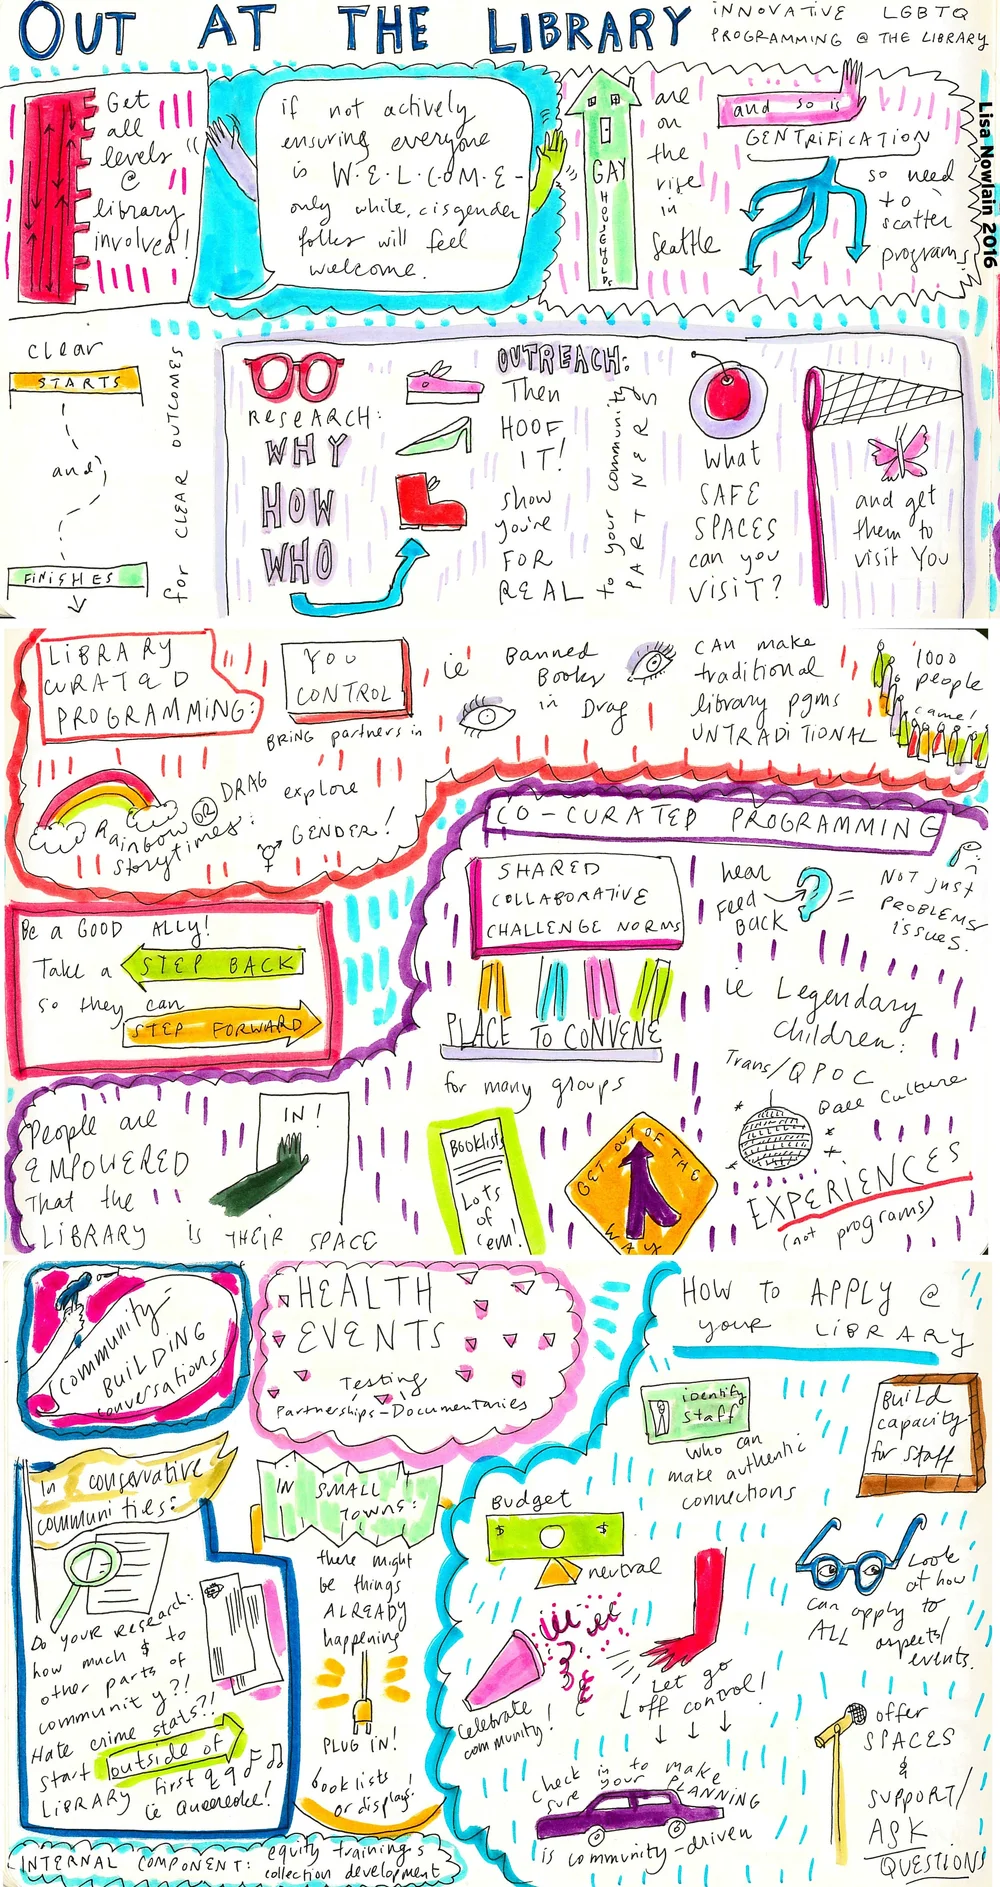 OUT AT THE LIBRARY
INNOVATIVE LGBTQ
PROGRAMMING @ THE LIBRARY
Lisa Nowlain 2016
Get
all
levels
@
library
involved!
if not actively
ensuring everyone
is W·E·L·C·O·M·E-
only white, cisgender
folks will feel
welcome.
GAY
HOUSEHOLDS
are
on
the
rise
in
Seattle
and so is
GENTRIFICATION
so need
to
scatter
programs.
clear
STARTS
and
FINISHES
for CLEAR OUTCOMES
RESEARCH:
WHY
HOW
WHO
OUTREACH:
Then
HOOF
IT!
show
you're
FOR
REAL
to your community
PARTNERS
what
SAFE
SPACES
can you
VISIT?
and get
them to
visit YOU
LIBRARY
CURATED
PROGRAMMING:
YOU
CONTROL
BRING partners in
ie
Banned
Books
in Drag
CAN make
traditional
library pgms
UNTRADITIONAL
1000
people
came!
Rainbow OR DRAG
storytimes:
explore
GENDER!
CO-CURATED PROGRAMMING
SHARED
COLLABORATIVE
CHALLENGE NORMS
hear
FEED
BACK
=
NOT just
PROBLEMS/
ISSUES.
Be a GOOD ALLY!
Take a STEP BACK
so they can
STEP FORWARD
PLACE TO CONVENE
for many groups
ie Legendary
Children:
Trans/QPOC
Ball Culture
EXPERIENCES
(not programs)
People are
EMPOWERED
that the
LIBRARY is THEIR SPACE
IN!
Booklists
Lots
of
'em!
GET OUT OF THE
WAY
Community-
BUILDING
conversations
HEALTH
EVENTS
Testing
Partnerships-Documentaries
HOW TO APPLY @
your LIBRARY
identify
staff
who can
make authentic
connections
Build
capacity
for staff
In conservative
communities:
Do your research:
how much $ to
other parts of
community?!
Hate crime stats?!
start outside of
LIBRARY first
ie Queeraoke!
IN SMALL
TOWNS:
there might
be things
ALREADY
happening
PLUG IN!
booklists
or displays!
Budget
$ $
neutral
Celebrate
community!
Let go
off control!
Look
at how
can apply to
ALL aspects/
events.
Check in to make
sure your PLANNING
is community-driven
offer
SPACES
&
SUPPORT/
ASK
QUESTIONS
INTERNAL COMPONENT: equity trainings
collection development